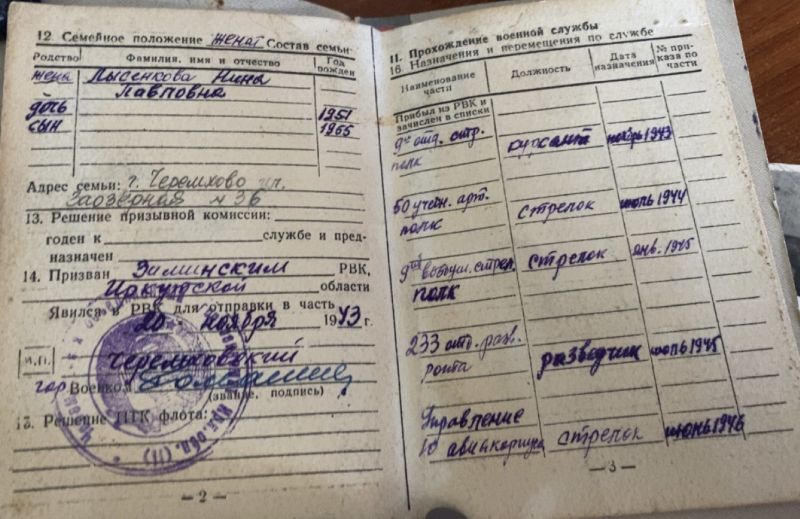 12. Семейное положение женат Состав семьи:
Родство
Фамилия, имя и отчество
Год рожден.
жена Лысенкова Нина
Павловна
дочь 1951
сын 1955
Адрес семьи: г. Черемхово ул.
Заозерная № 36
13. Решение призывной комиссии:
годен к службе и пред-
назначен
14. Призван Зиминским РВК,
Иркутской области
Явился в РВК для отправки в часть
20 ноября 1943 г.
М.П. Черемховский
гор Военком
(звание, подпись)
15. Решение ПТК флота:
— 2 —
II. Прохождение военной службы
16. Назначения и перемещения по службе
Наименование части
Должность
Дата назначения
№ приказа по части
Прибыл из РВК и
зачислен в списки
9ый отд. стр. курсант ноябрь 1943
полк
50 учебн. арт. стрелок июль 1944
полк
9ый воздуш. стрел. стрелок янв. 1945
полк
233 отд. разв. разведчик июль 1945
рота
Управление
10 авиакорпуса стрелок июнь 1946
— 3 —